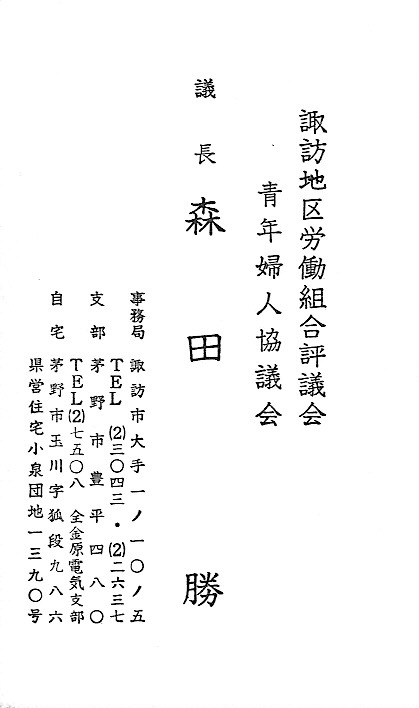 諏訪地区労働組合評議会
青年婦人協議会
議長 森田勝
事務局 諏訪市大手一ノ一〇ノ五
TEL (2)三〇四三・(2)二六三七
支部 茅野市豊平四八〇
TEL(2)七五〇八 全金原電気支部
自宅 茅野市玉川字狐段九八六
県営住宅小泉団地一三九〇号